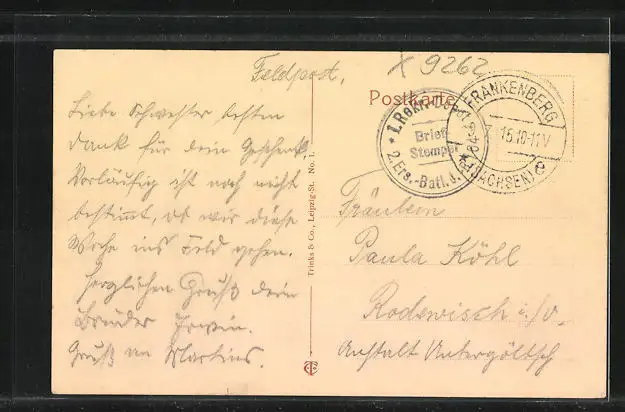 Feldpost.
x 9262
Postkarte
Liebe Schwester besten
Dank für dein Geschenk
Vorläufig ist noch nicht
bestimmt, ob wir diese
Woche ins Feld gehen.
Herzlichen Gruß dein
Bruder Erwin.
Gruß an Martins.
Trinks & Co., Leipzig-St. No. 1.
* 1. Rekr. Dépot
Brief-
Stempel
2. Ers.-Batl. J.
FRANKENBERG
15.10-11V
* (SACHSEN) e
Fräulein
Paula Köhl
Rodewisch i./V.
Anstalt Untergöltzsch
TC